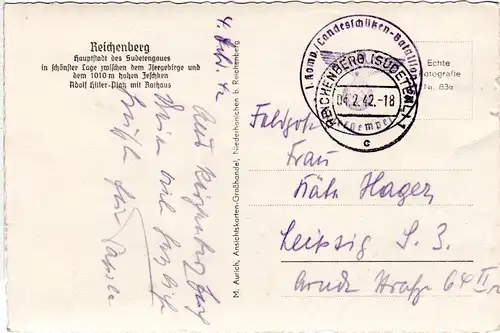 Reichenberg
Hauptstadt des Sudetengaues
in schönster Lage zwischen dem Isergebirge und
dem 1010 m hohen Jeschken
Adolf Hitler-Platz mit Rathaus
4. Feb. 42
Aus Reichenberg
herzliche
Grüße
M. Aurich, Ansichtskarten-Großhandel, Niederhanichen b. Reichenberg
1. Komp./Landesschützen-Bataillon
REICHENBERG (SUDETENL) 1
04.2.42.-18
c
Echte
Fotografie
Nr. 83a
Feldpost
Frau
Käte Hager
Leipzig S. 3.
Arndt Straße 64 II